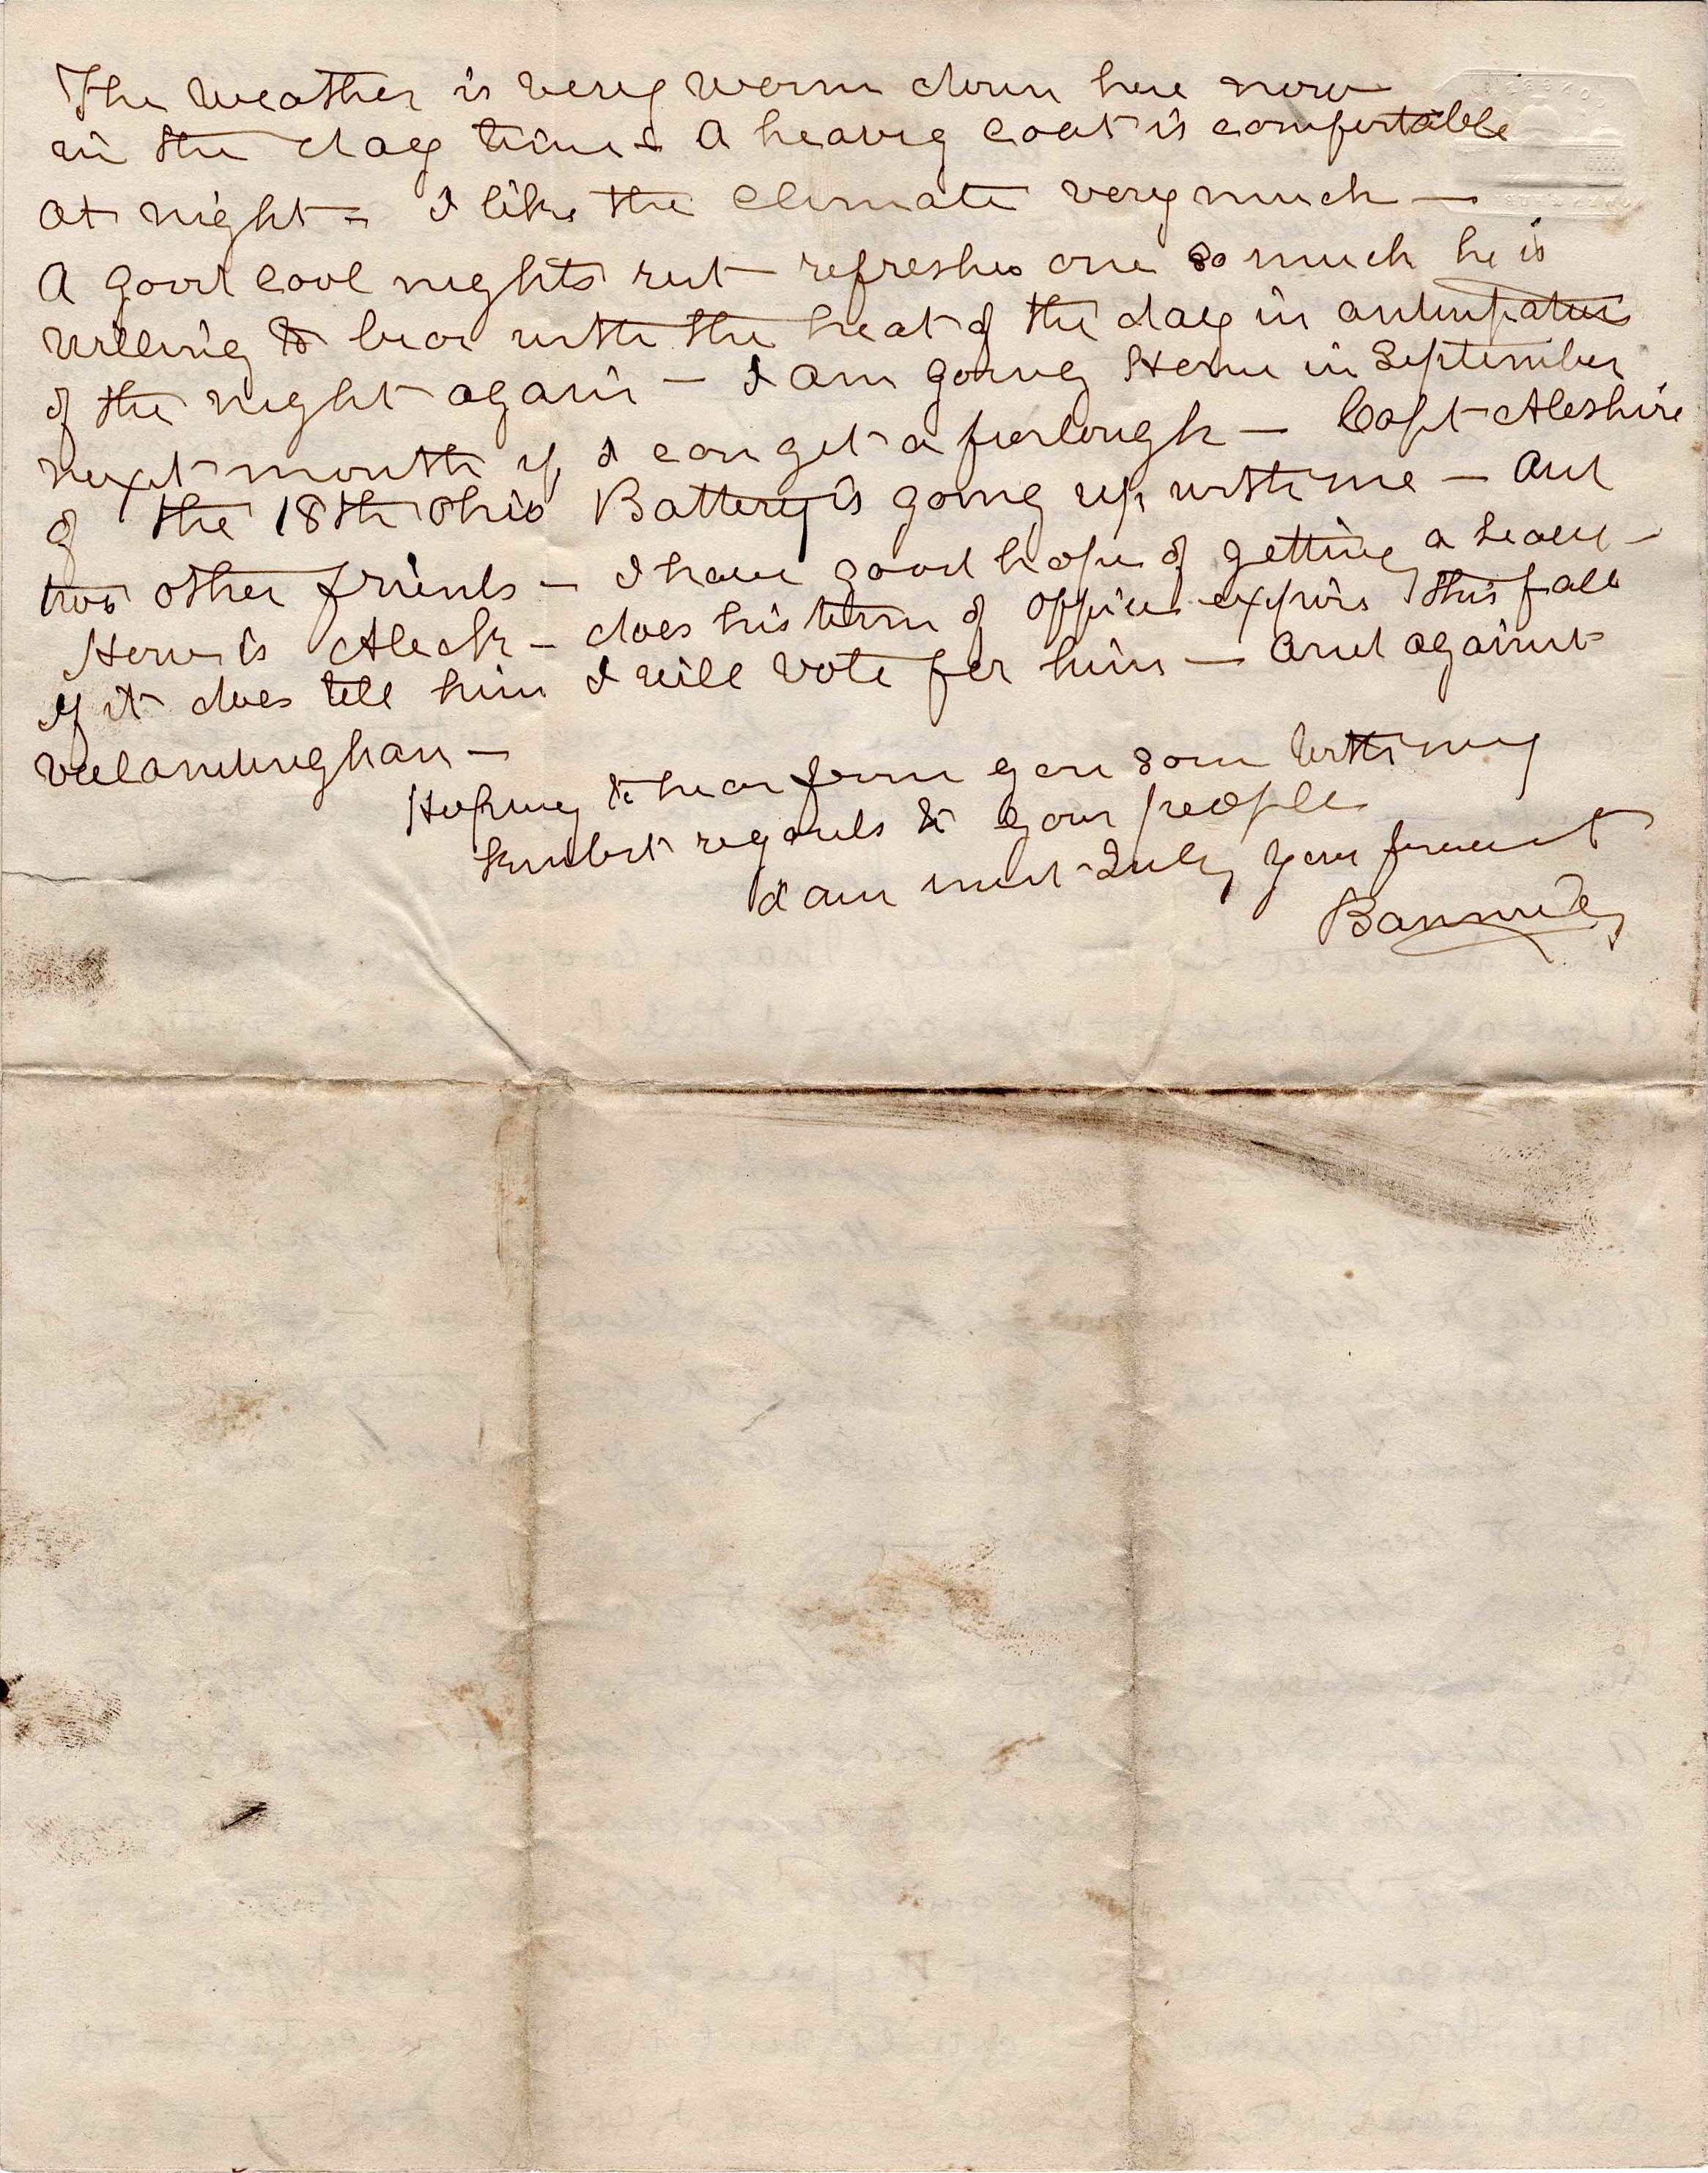 The weather is very warm down here now
in the day time & A heavy coat is comfortable
at night = I like the climate very much —
A good cool nights rest refreshes one so much he is
willing to bear with the heat of the day in anticipation
of the night again — I am going Home in September
next month if I can get a furlough — Capt Aleshire
of the 18th Ohio Battery is going up with me — and
two other friends — I have good hope of getting a leave —
How is Aleck — does his term of office expire this fall
If it does tell him I will vote for him — and against
Valandingham —
Hoping to hear from you soon with my
kindest regards to your people
I am most Truly your friend